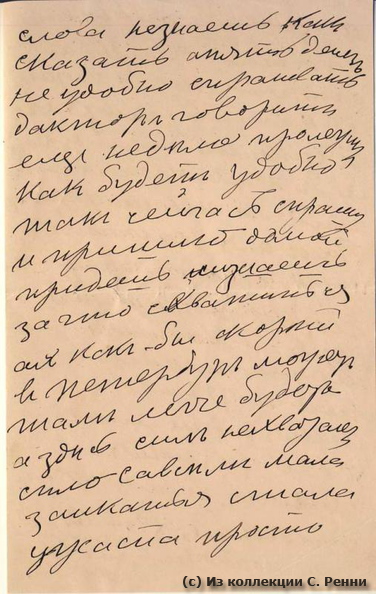 слова незнаешь какъ
сказать опять день
не удобно спрашивать
дакторъ говоритъ
еще неделю пролежу
как будетъ удобно
такъ сейчасъ спрашу
и пришлю домой
придешь незнаешь
за что схватиться
ах какъ-бы скорей
в Петербургъ можетъ
тамъ легче будетъ
а здесь силъ нехватаетъ
спло савсемъ мала
заикатья стала
ужаста просто
(c) Из коллекции С. Ренни